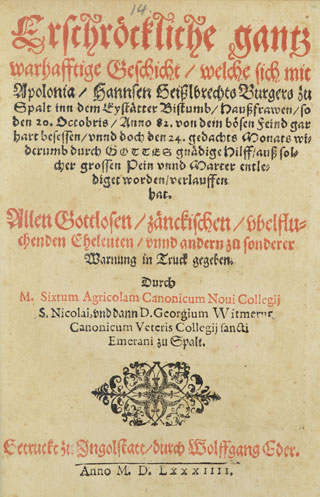 14.
Erschröckliche gantz
warhafftige Geschicht / welche sich mit
Apolonia / Hannsen Geißlbrechts Burgers zu
Spalt inn dem Eystätter Bistumb / Haußfrawen / so
den 20. Octobris / Anno 82. von dem bösen Feind gar
hart besessen / vnnd doch den 24. gedachts Monats wi-
derumb durch GOTTES gnädige Hilff / auß sol-
cher grossen Pein vnnd Marter entle-
diget worden / verlauffen
hat.
Allen Gottlosen / zänckischen / vbelflu-
chenden Eheleuten / vnnd andern zu sonderer
Warnung in Truck gegeben.
Durch
M. Sixtum Agricolam Canonicum Noui Collegij
S. Nicolai, vnd dann D. Georgium Witmerum
Canonicum Veteris Collegij sancti
Emerani zu Spalt.
Getruckt zu Ingolstatt / durch Wolffgang Eder.
Anno M. D. LXXXIIII.